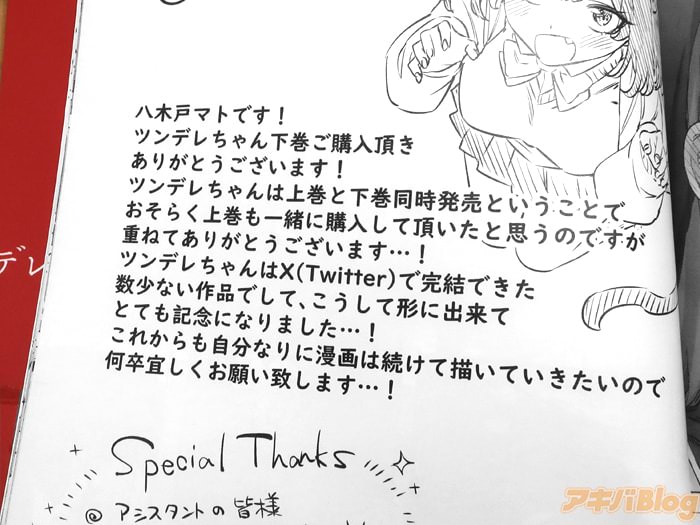 八木戸マトです！
ツンデレちゃん下巻ご購入頂き
ありがとうございます！
ツンデレちゃんは上巻と下巻同時発売ということで
おそらく上巻も一緒に購入して頂いたと思うのですが
重ねてありがとうございます…！
ツンデレちゃんはX(Twitter)で完結できた
数少ない作品でして、こうして形に出来て
とても記念になりました…！
これからも自分なりに漫画は続けて描いていきたいので
何卒宜しくお願い致します…！
Special Thanks
◎ アシスタントの皆様
デレ
アキバBlog